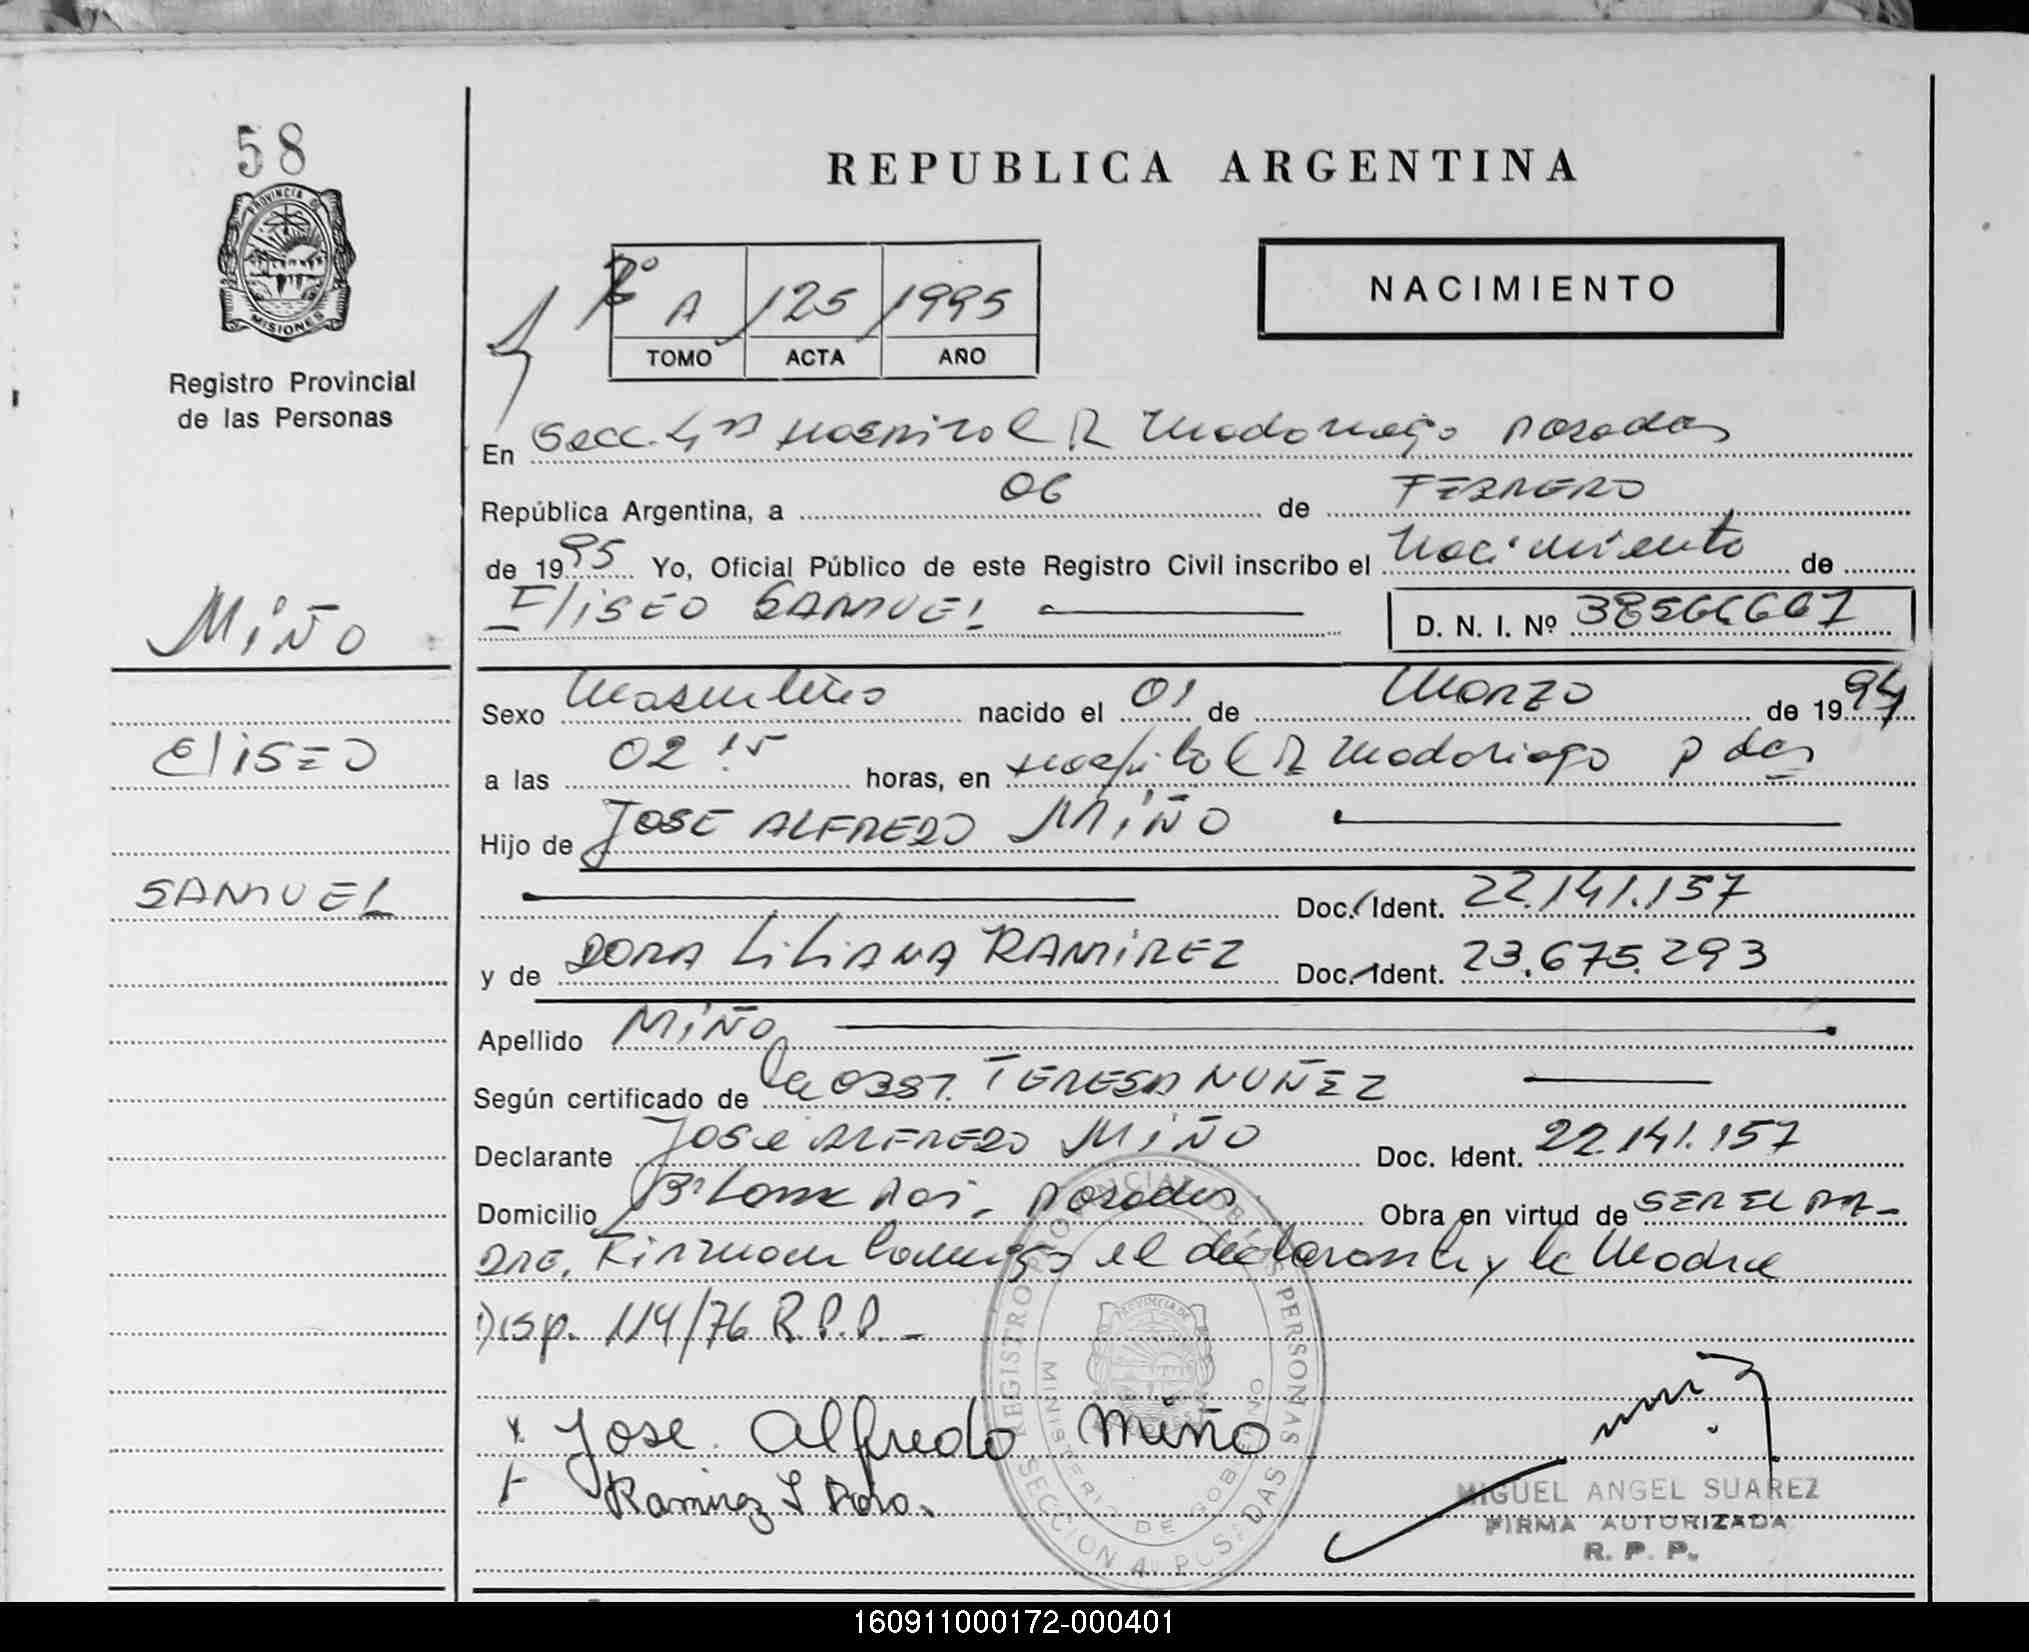 58
PROVINCIA DE
MISIONES
Registro Provincial
de las Personas
REPUBLICA ARGENTINA
NACIMIENTO
A 125 1995
TOMO ACTA AÑO
En Secc. 4ta Hospital R Madariaga Posadas
República Argentina, a 06 de FEBRERO
de 1995 Yo, Oficial Público de este Registro Civil inscribo el Nacimiento de
ELISEO SAMUEL D. N. I. Nº 38566667
MIÑO
Sexo Masculino nacido el 01 de Marzo de 1994
ELISEO
a las 02 15 horas, en Hospital R Madariaga Pdas
Hijo de JOSE ALFREDO MIÑO
SAMUEL
Doc. Ident. 22.141.157
y de DORA LILIANA RAMIREZ Doc. Ident. 23.675.293
Apellido MIÑO
Según certificado de la OBST. TERESA NUÑEZ
Declarante JOSE ALFREDO MIÑO Doc. Ident. 22.141.157
Domicilio Posadas Obra en virtud de SER EL PA-
DRE. Firman conmigo el declarante y la Madre
Disp. 114/76 R.P.P.
x Jose Alfredo Miño
Ramirez L Dora.
REGISTRO PROVINCIAL DE LAS PERSONAS
MINISTERIO DE GOBIERNO
SECCION 4a POSADAS
MIGUEL ANGEL SUAREZ
FIRMA AUTORIZADA
R. P. P.
160911000172-000401